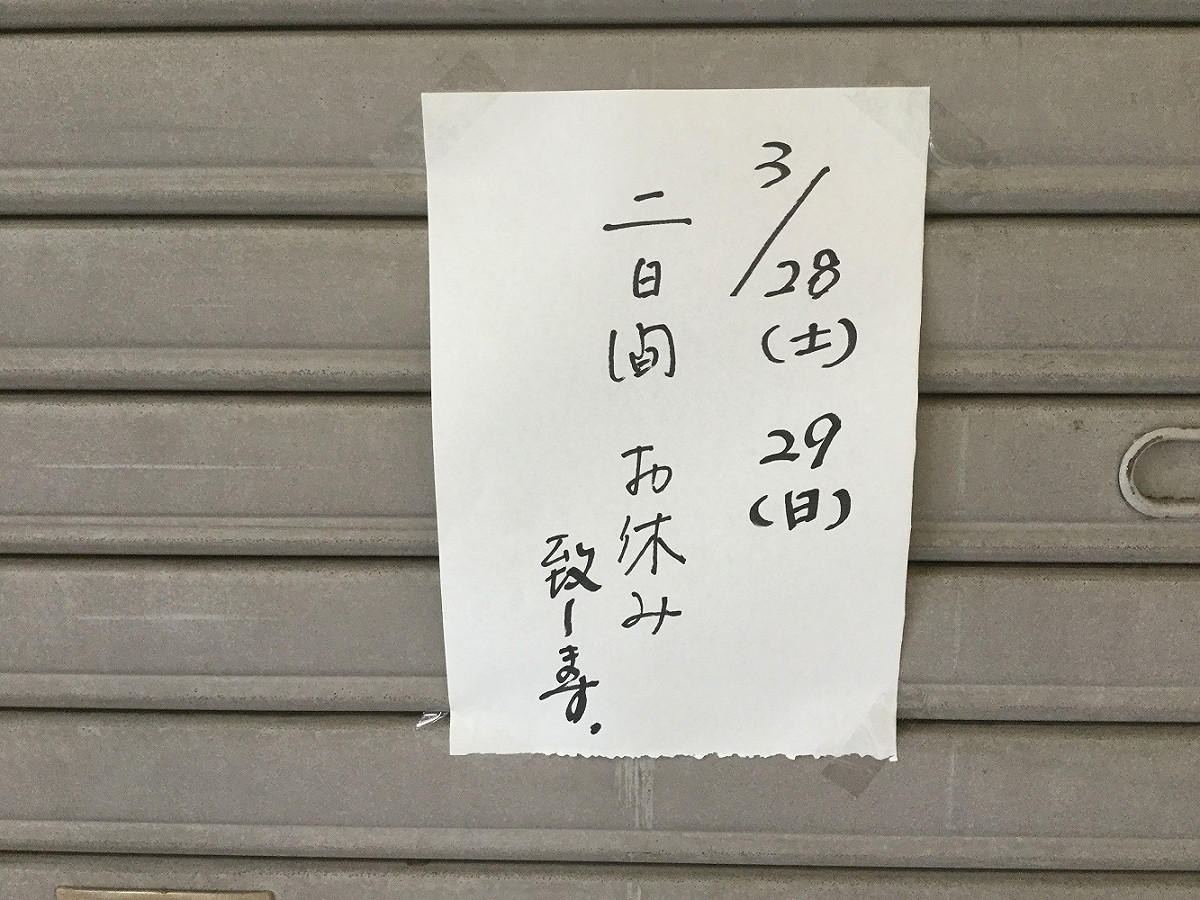 3/28(土) 29(日)
二日間 お休み
致します.